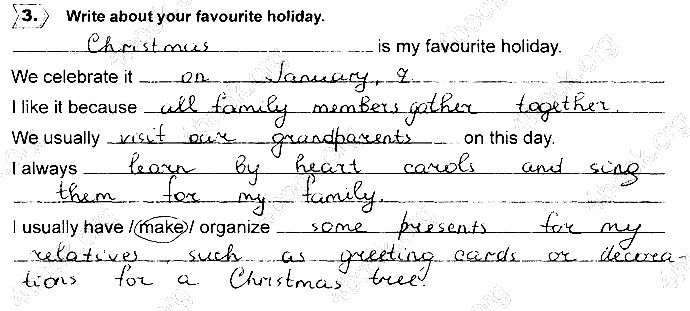 3. Write about your favourite holiday.
Christmas is my favourite holiday.
We celebrate it on January, 7
I like it because all family members gather together.
We usually visit our grandparents on this day.
I always learn by heart carols and sing
them for my family.
I usually have / make / organize some presents for my
relatives such as greeting cards or decora-
tions for a Christmas tree.